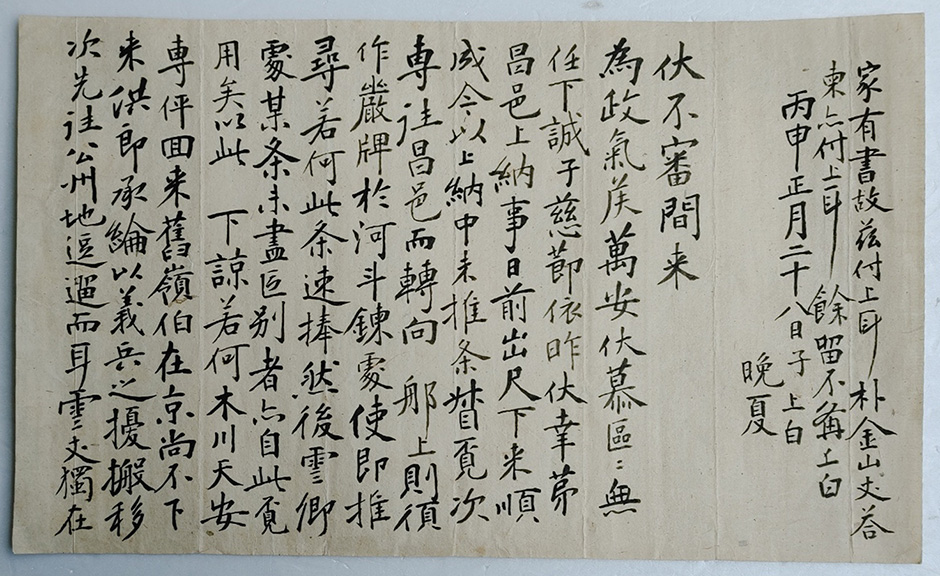 伏不審間来
為政氣候萬安伏慕區〻無
任下誠子慈節依昨伏幸第
昌邑上納事日前出尺下来順
成今以上納中未推条督覓次
専往昌邑而轉向 上則須
作嚴牌於河斗錬處使即推
尋若何此条速捧然後雲卿
處某条未盡区别者亦自此覓
用矣以此 下諒若何木川天安
専伻回来舊嶺伯在京尚不下
来洪郎承綸以義兵之擾搬移
次先往公州地逗遛而耳雲丈獨在
家有書故玆付上耳 朴金山丈答
柬亦付上耳 餘留不備上白
丙申正月二十八日子上白
晚夏